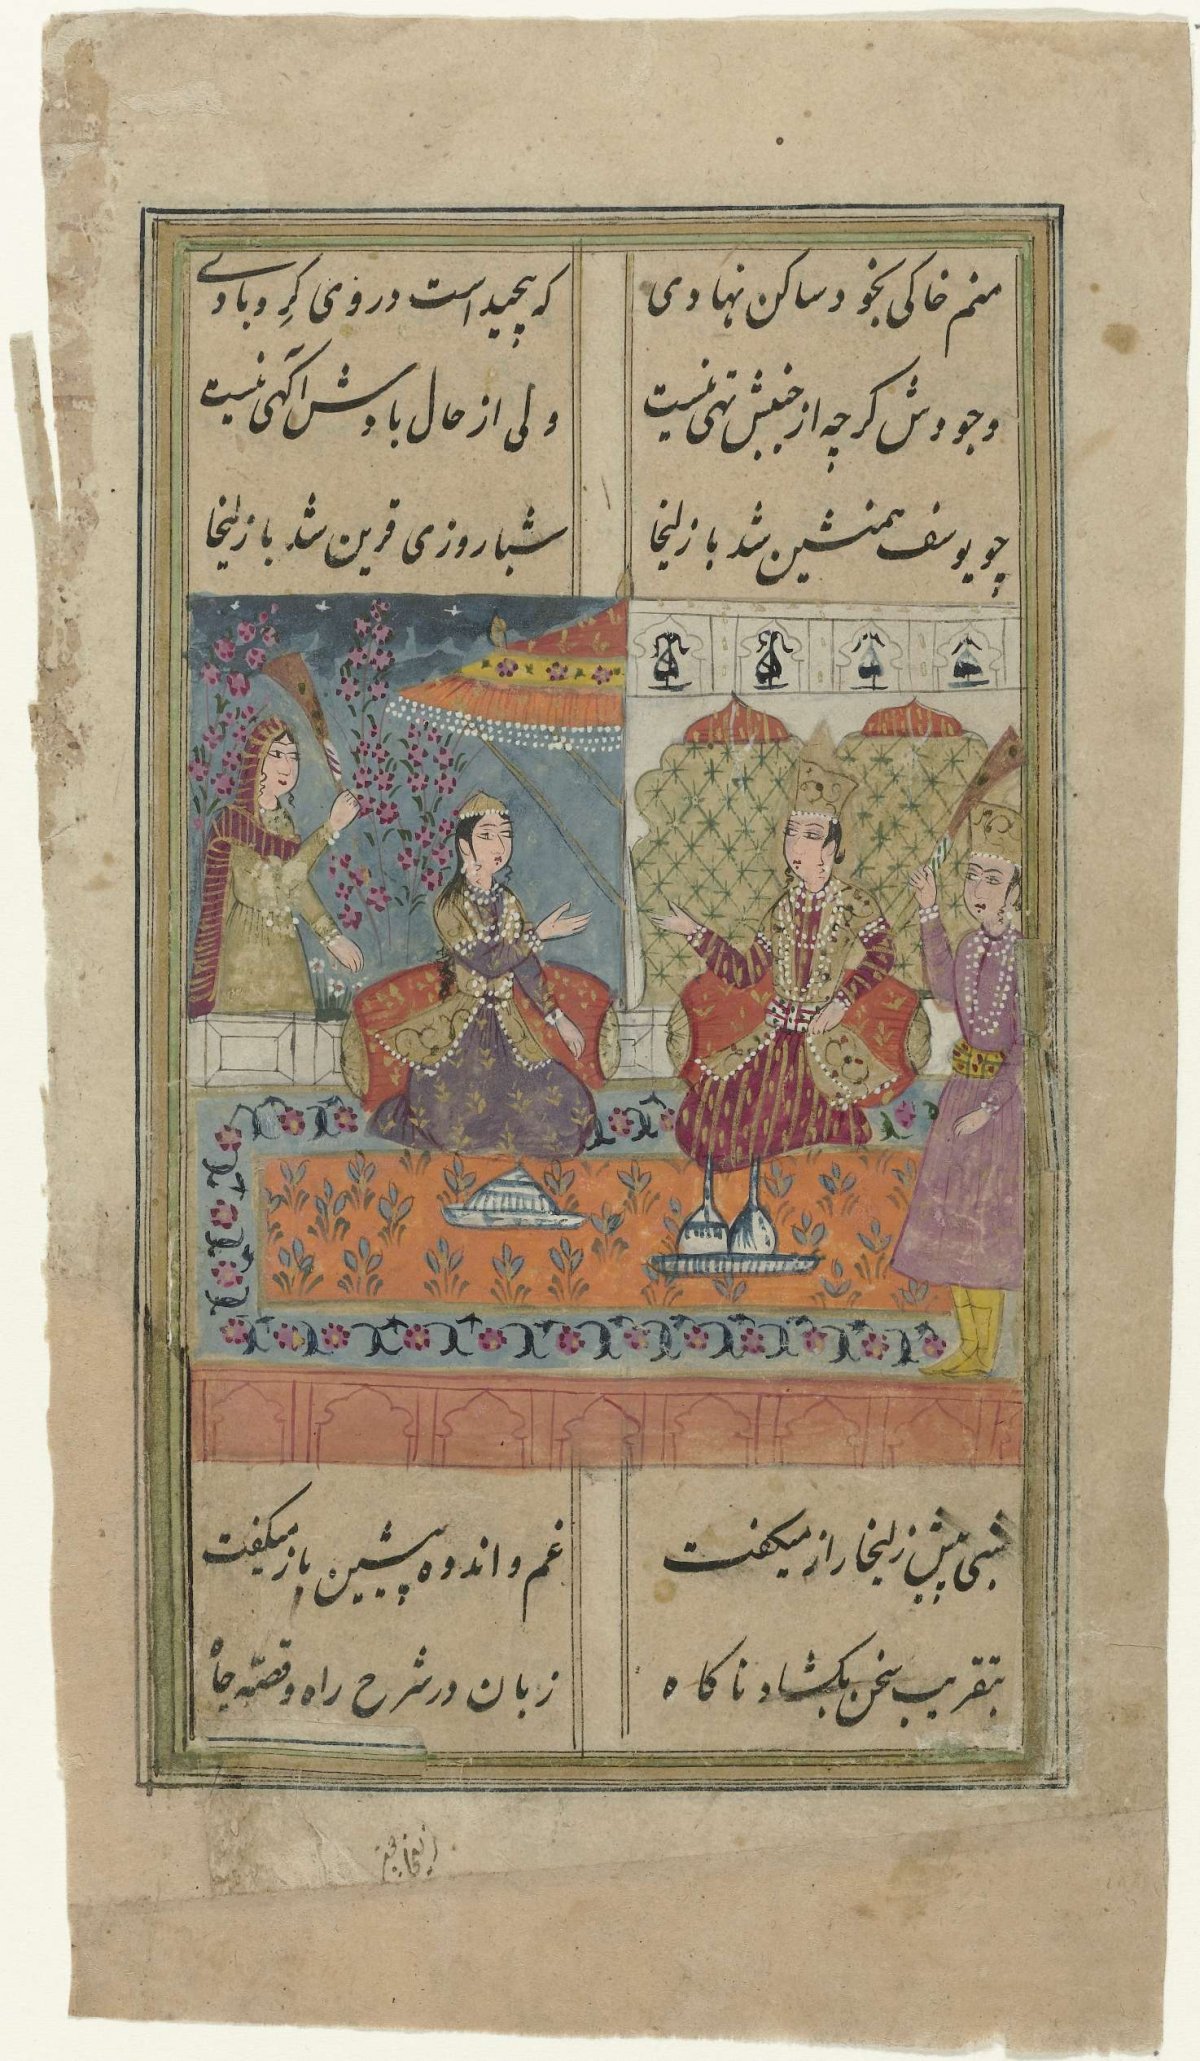 منم خاکی بخود ساکن نهادی که پیچیداست در وی گرد بادے
وجودش کرچه از جنبش تهی نیست ولی از حال بادش آگهی نیست
چو یوسف همنشین شد با زلیخا شباروزی قرین شد با زلیخا
شبی پیش زلیخا راز میکفت غم و اندوه پیشین باز میکفت
بتقریب سخن بکشاد ناکاه زبان در شرح راه و قصّه چاه